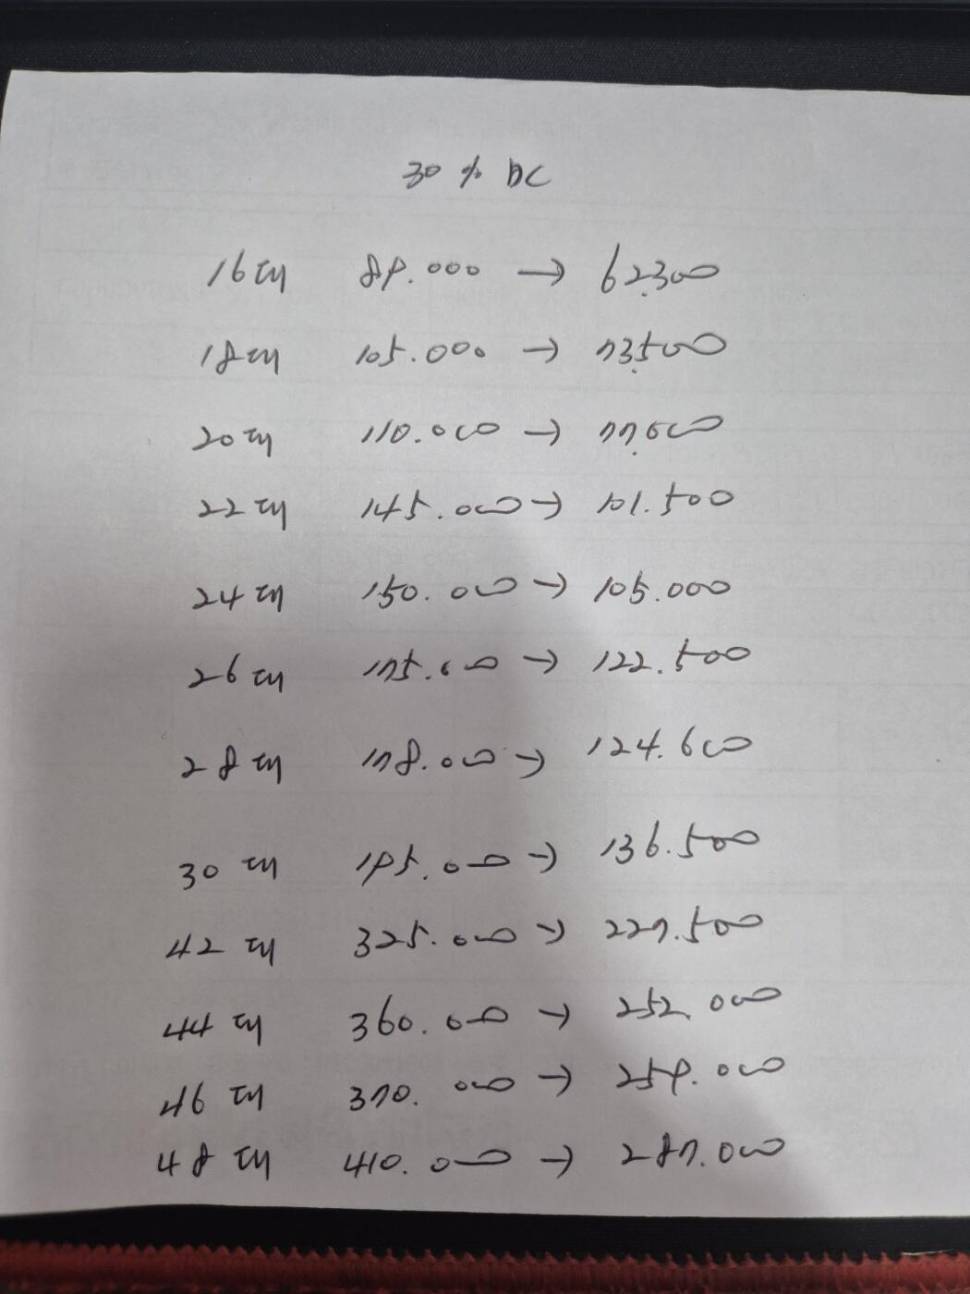 30 % DC
16대 89.000 → 62.300
18대 105.000 → 73.500
20대 110.000 → 77.000
22대 145.000 → 101.500
24대 150.000 → 105.000
26대 175.000 → 122.500
28대 178.000 → 124.600
30대 195.000 → 136.500
42대 325.000 → 227.500
44대 360.000 → 252.000
46대 370.000 → 259.000
48대 410.000 → 287.000